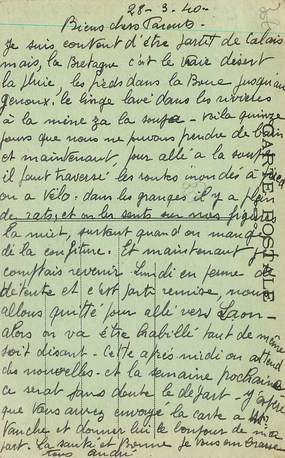 28-3-40-
Biens chers Parents-
Je suis content d'être partit de Calais
mais, la Bretagne c'est le vrai désert
la pluie. les pieds dans la Boue jusqu'au
genoux, le linge lavé dans les rivières
à la mine za la soupe - Voila quinze
jours que nous ne pouvons prendre de bain
et maintenant, pour allé a la soupe
il faut traversé les routes inondés à pied
ou a Vélo. dans les granges il y a plein
de rats, et on les sents sur nos
la nuit, surtout quand on mange
de la confiture. Et maintenant je
comptais revenir Lundi en perme de
détente et c'est parti remise, nous
allons quitté pour allé vers Laon-
alors on va être habillé tout de même
soit disant. Cette après midi on attend
des nouvelles. et la semaine prochaine
ce serat sans doute le départ - J'espère
que Vous aurez envoyé la carte a Mr
Tanche et donner lui le bonjour de ma
part. La santé est Bonne Je Vous embrasse
tous andré
CARTE POSTALE